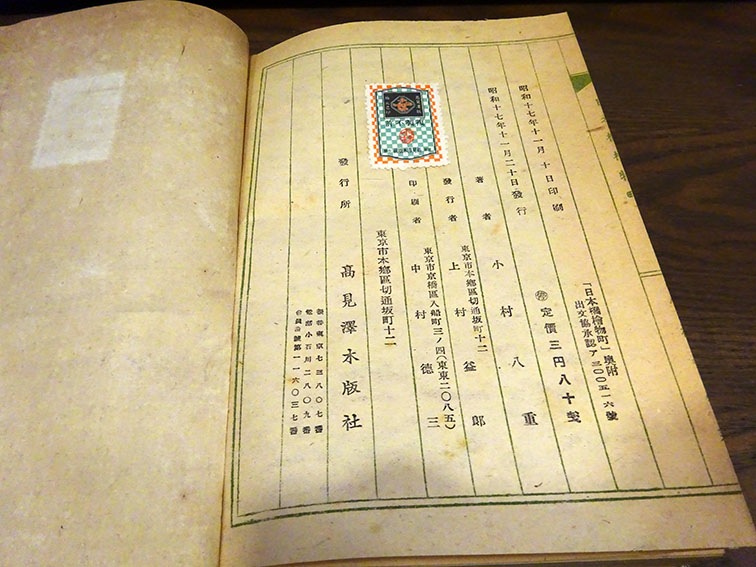 「日本橋檜物町」奥附
出文協承認ア三〇〇五一六號
昭和十七年十一月 十 日印刷
昭和十七年十一月二十日發行
定價三円八十錢
著者 小村八重
東京市本鄕區切通坂町十二
發行者 上村益郎
東京市京橋區入船町三ノ四(東東二〇八五)
印刷者 中村德三
東京市本鄕區切通坂町十二
發行所 高見澤木版社
振替東京七三八〇七番
電話小石川二八〇九番
會員番號第一一六〇三七番